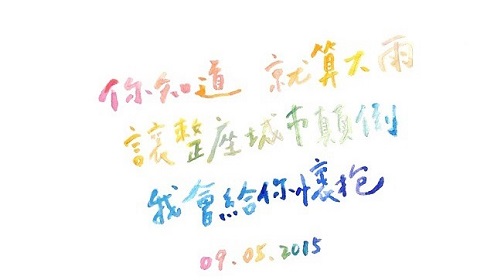 你知道 就算大雨
讓整座城市顛倒
我會給你懷抱
09.05.2015